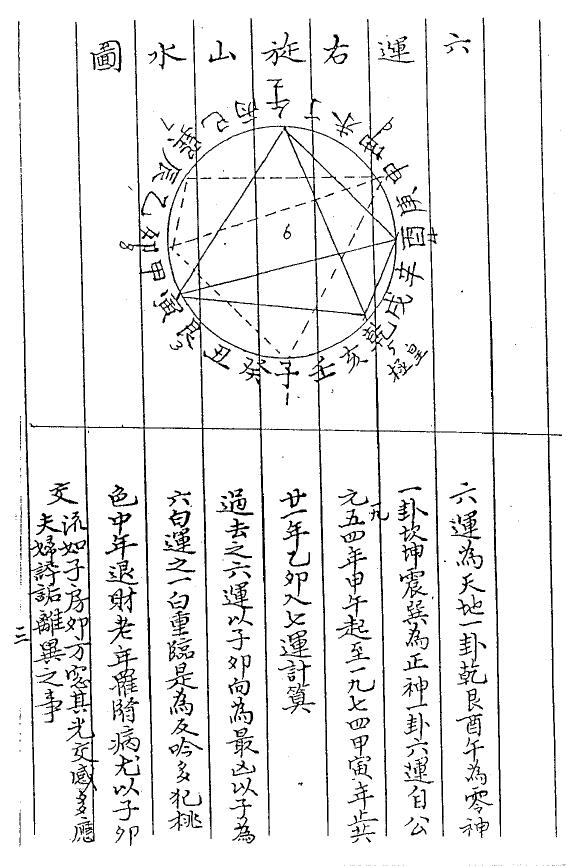 六運右旋山水圖
午丁未坤申庚酉辛戌乾亥壬子癸丑艮寅甲卯乙辰巽巳丙
6
3
1
皇極
六運為天地一卦乾艮酉午為零神
一卦坎坤震巽為正神一卦六運自公
元一九五四年甲午起至一九七四甲寅年止共
廿一年乙卯入七運計算
過去之六運以子卯向為最凶以子為
六白運之一白重臨是為反吟多犯桃
色中年退財老年罹腎病尤以子卯
交流如子房卯方窓其光交感多應
夫婦誶詬離異之事
三